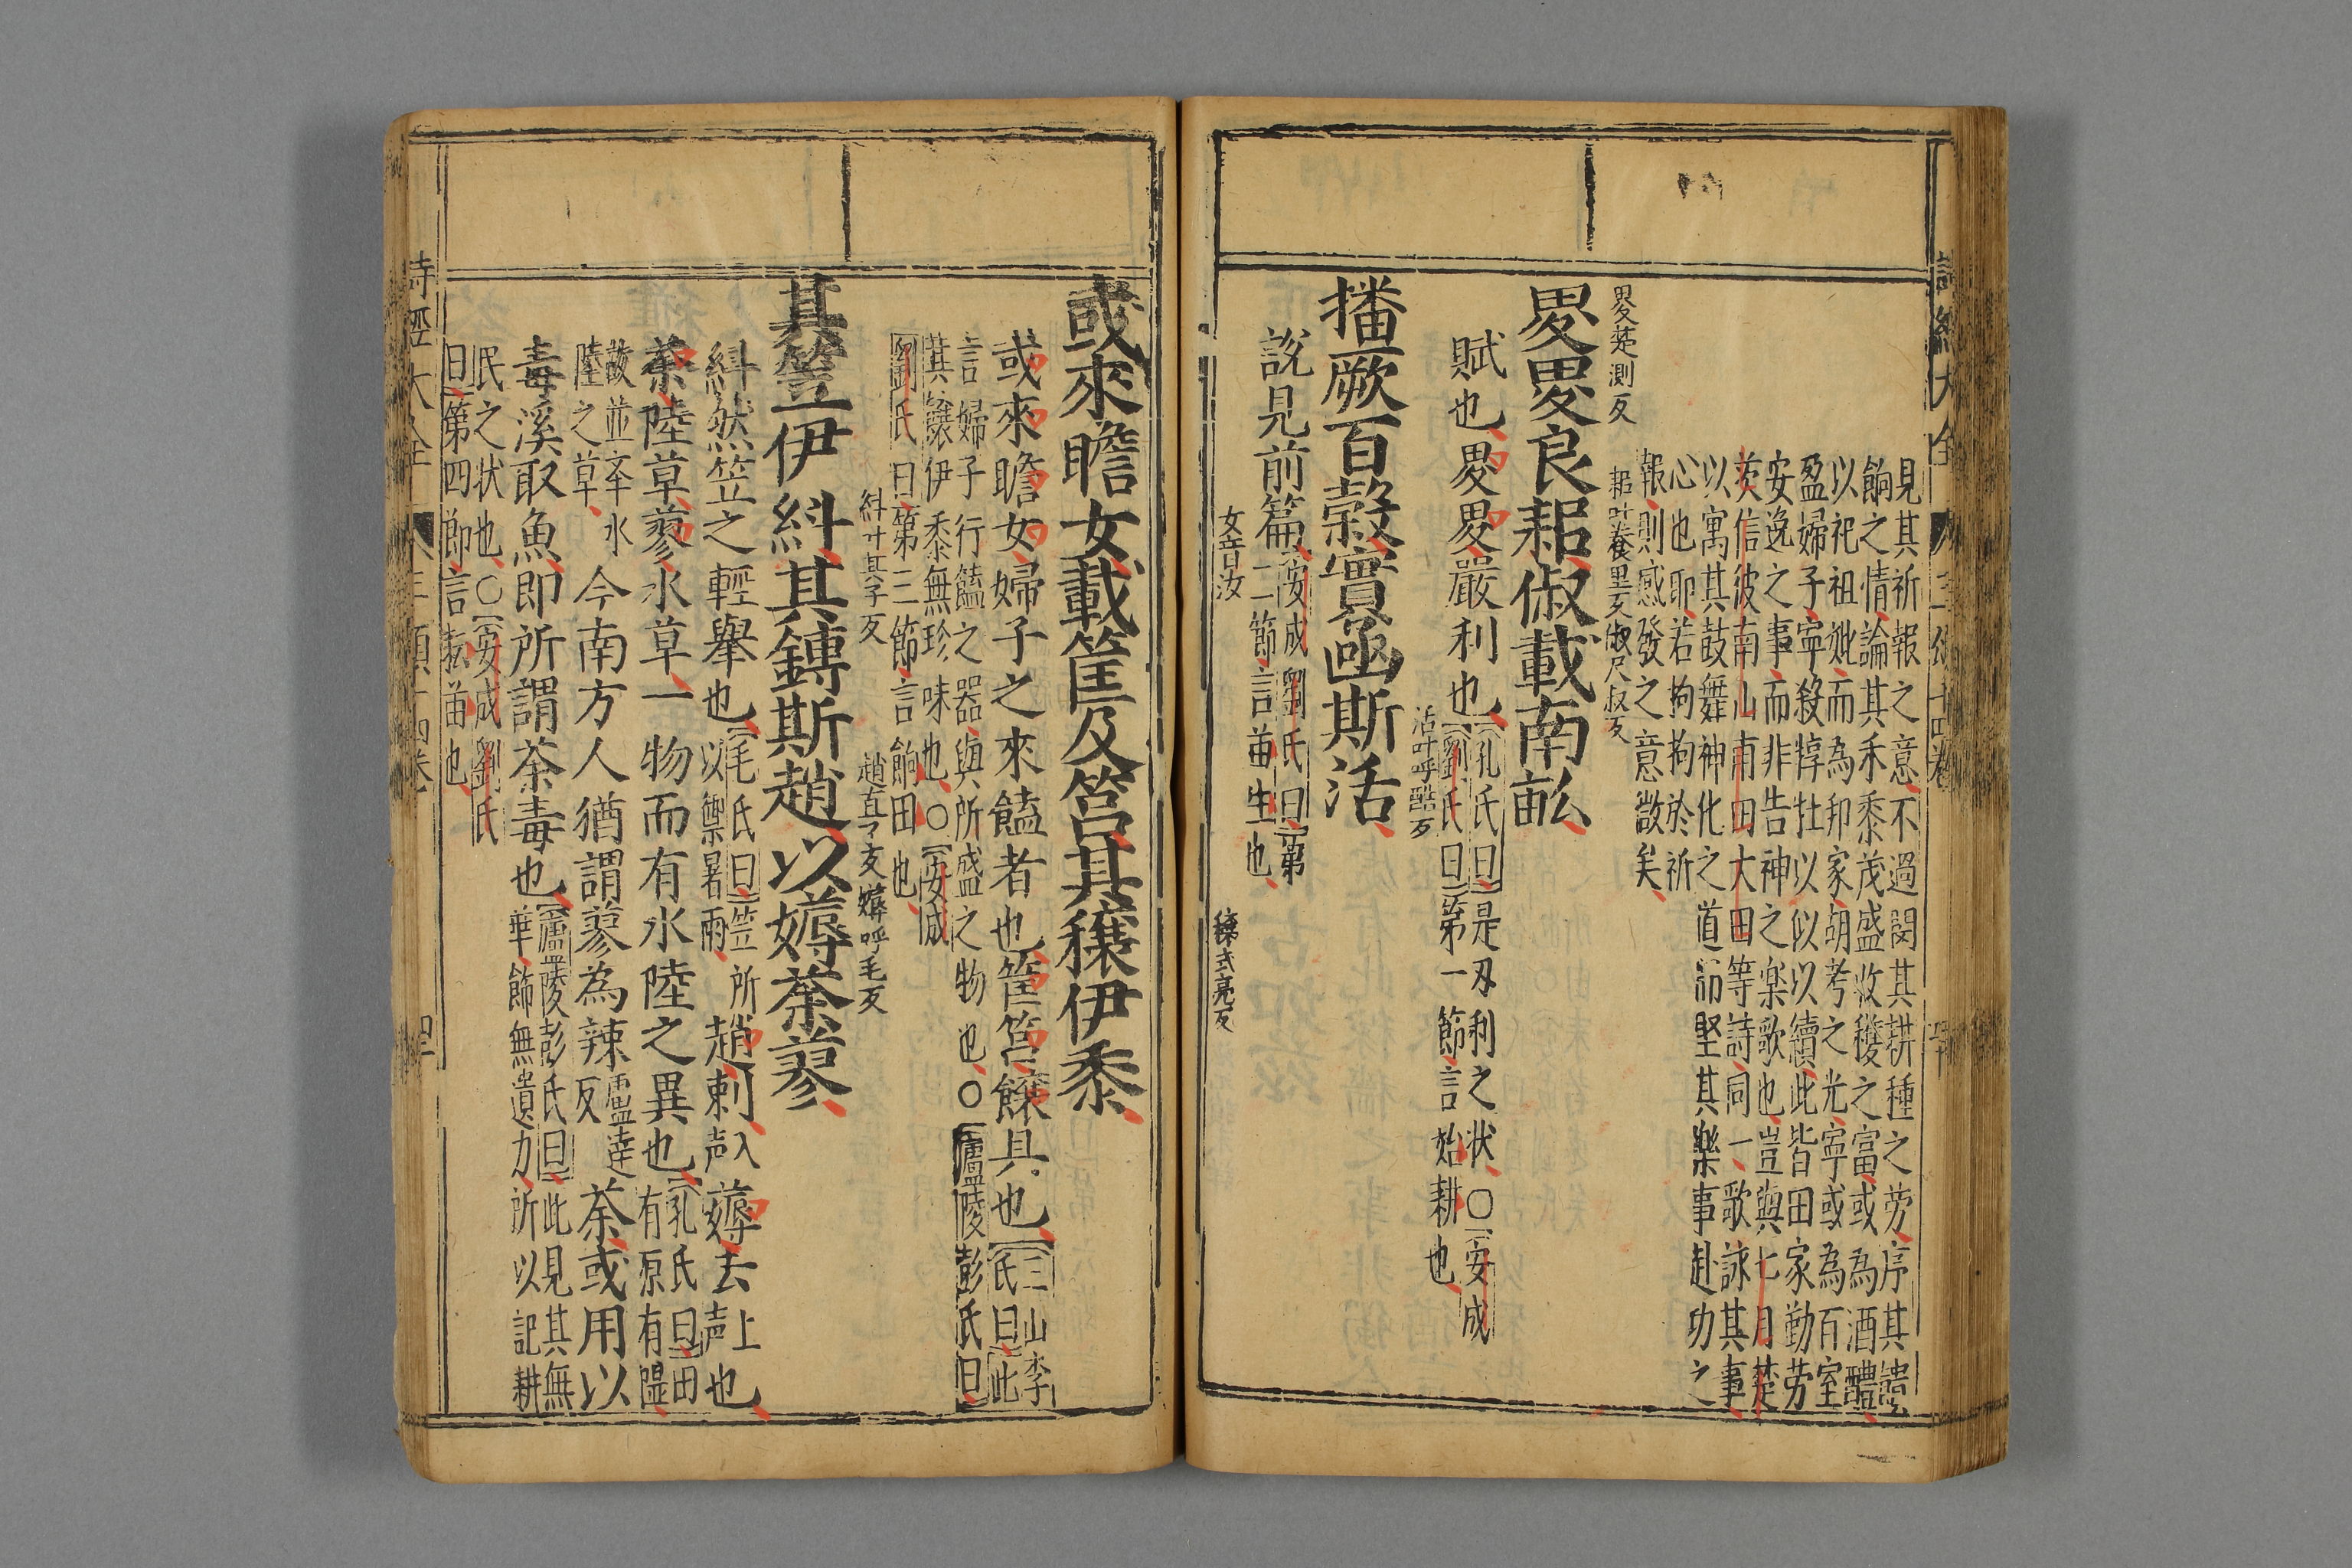 見其祈報之意不過閔其耕種之劳序其饁
餉之情論其禾黍茂盛收穫之富或為酒醴
以祀祖妣而為邦家胡考之光寕或為百室
盈婦子寕殺犉牡以似以續此皆田家勤劳
安逸之事而非告神之楽歌也豈與七月楚
茨信彼南山南田大田等詩同一歌詠其事
以寓其鼓舞神化之道而堅其樂事赴功之
心也耶若拘拘於祈
報則感發之意微矣
畟楚測反 耜叶養里反 俶尺叔反
畟畟良耜俶載南畝
賦也畟畟嚴利也
孔氏曰是刃利之状○安成
劉氏曰第一節言始耕也
活叶呼酷反
播厥百穀實函斯活
說見前篇
安成劉氏曰第
二節言苗生也
女音汝 饟式亮反
或來瞻女載筐及筥其穰伊黍
或來瞻女婦子之來饁者也筐筥饟具也
三山李
氏曰此
言婦子行饁之器與所盛之物也○廬陵彭氏曰
其饟伊黍無珍味也○安成
劉氏曰第三節言餉田也
糾叶其孑反 趙直了反 薅呼毛反
其笠伊糾其鎛斯趙以薅荼蓼
糾然笠之輕舉也
毛氏曰笠所
以禦暑雨
趙刺
入
声
薅去
上
声
也
荼陸草蓼水草一物而有水陸之異也
孔氏曰田
有原有隰
故並举水
陸之草
今南方人猶謂蓼為辣
盧達
反
荼或用以
毒溪取魚即所謂荼毒也
廬陵彭氏曰此見其無
華飾無遺力所以記耕
民之状也○安成劉氏
曰第四節言耘苗也
詩經大全